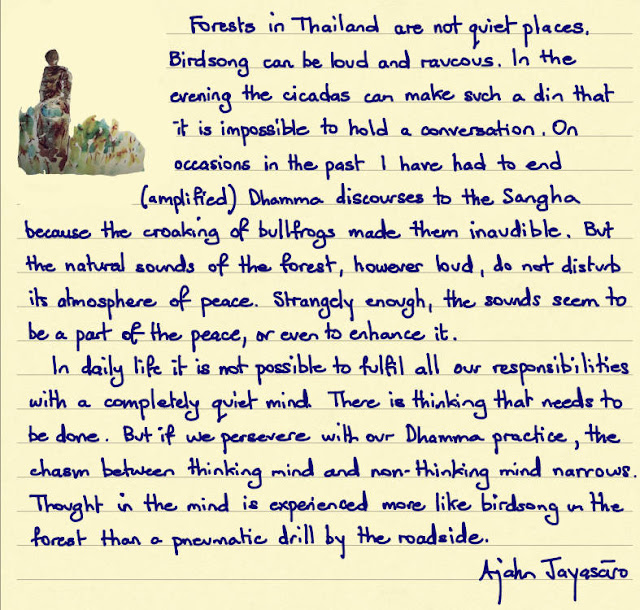 Forests in Thailand are not quiet places.
Birdsong can be loud and raucous. In the
evening the cicadas can make such a din that
it is impossible to hold a conversation. On
occasions in the past I have had to end
(amplified) Dhamma discourses to the Sangha
because the croaking of bullfrogs made them inaudible. But
the natural sounds of the forest, however loud, do not disturb
its atmosphere of peace. Strangely enough, the sounds seem to
be a part of the peace, or even to enhance it.
In daily life it is not possible to fulfil all our responsibilities
with a completely quiet mind. There is thinking that needs to
be done. But if we persevere with our Dhamma practice, the
chasm between thinking mind and non-thinking mind narrows.
Thought in the mind is experienced more like birdsong in the
forest than a pneumatic drill by the roadside.
Ajahn Jayasāro